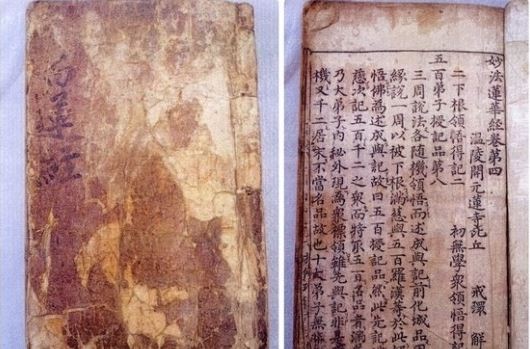 妙法蓮華經卷第四
溫陵開元蓮寺比丘 戒環 解
二下根領悟得記二 初無學衆領悟得記
五百弟子授記品第八
三周說法各随機領悟而述成與記前化城品因
緣說一周以被下根滿慈與五百羅漢等於此
悟佛爲述成與記故曰五百授記品然此先記
慈次記五百千二之衆而特取五百名品者滿
乃大弟子內祕外現爲衆標領雖先與記非是
機又千二居宋不當名品故也十大弟子無